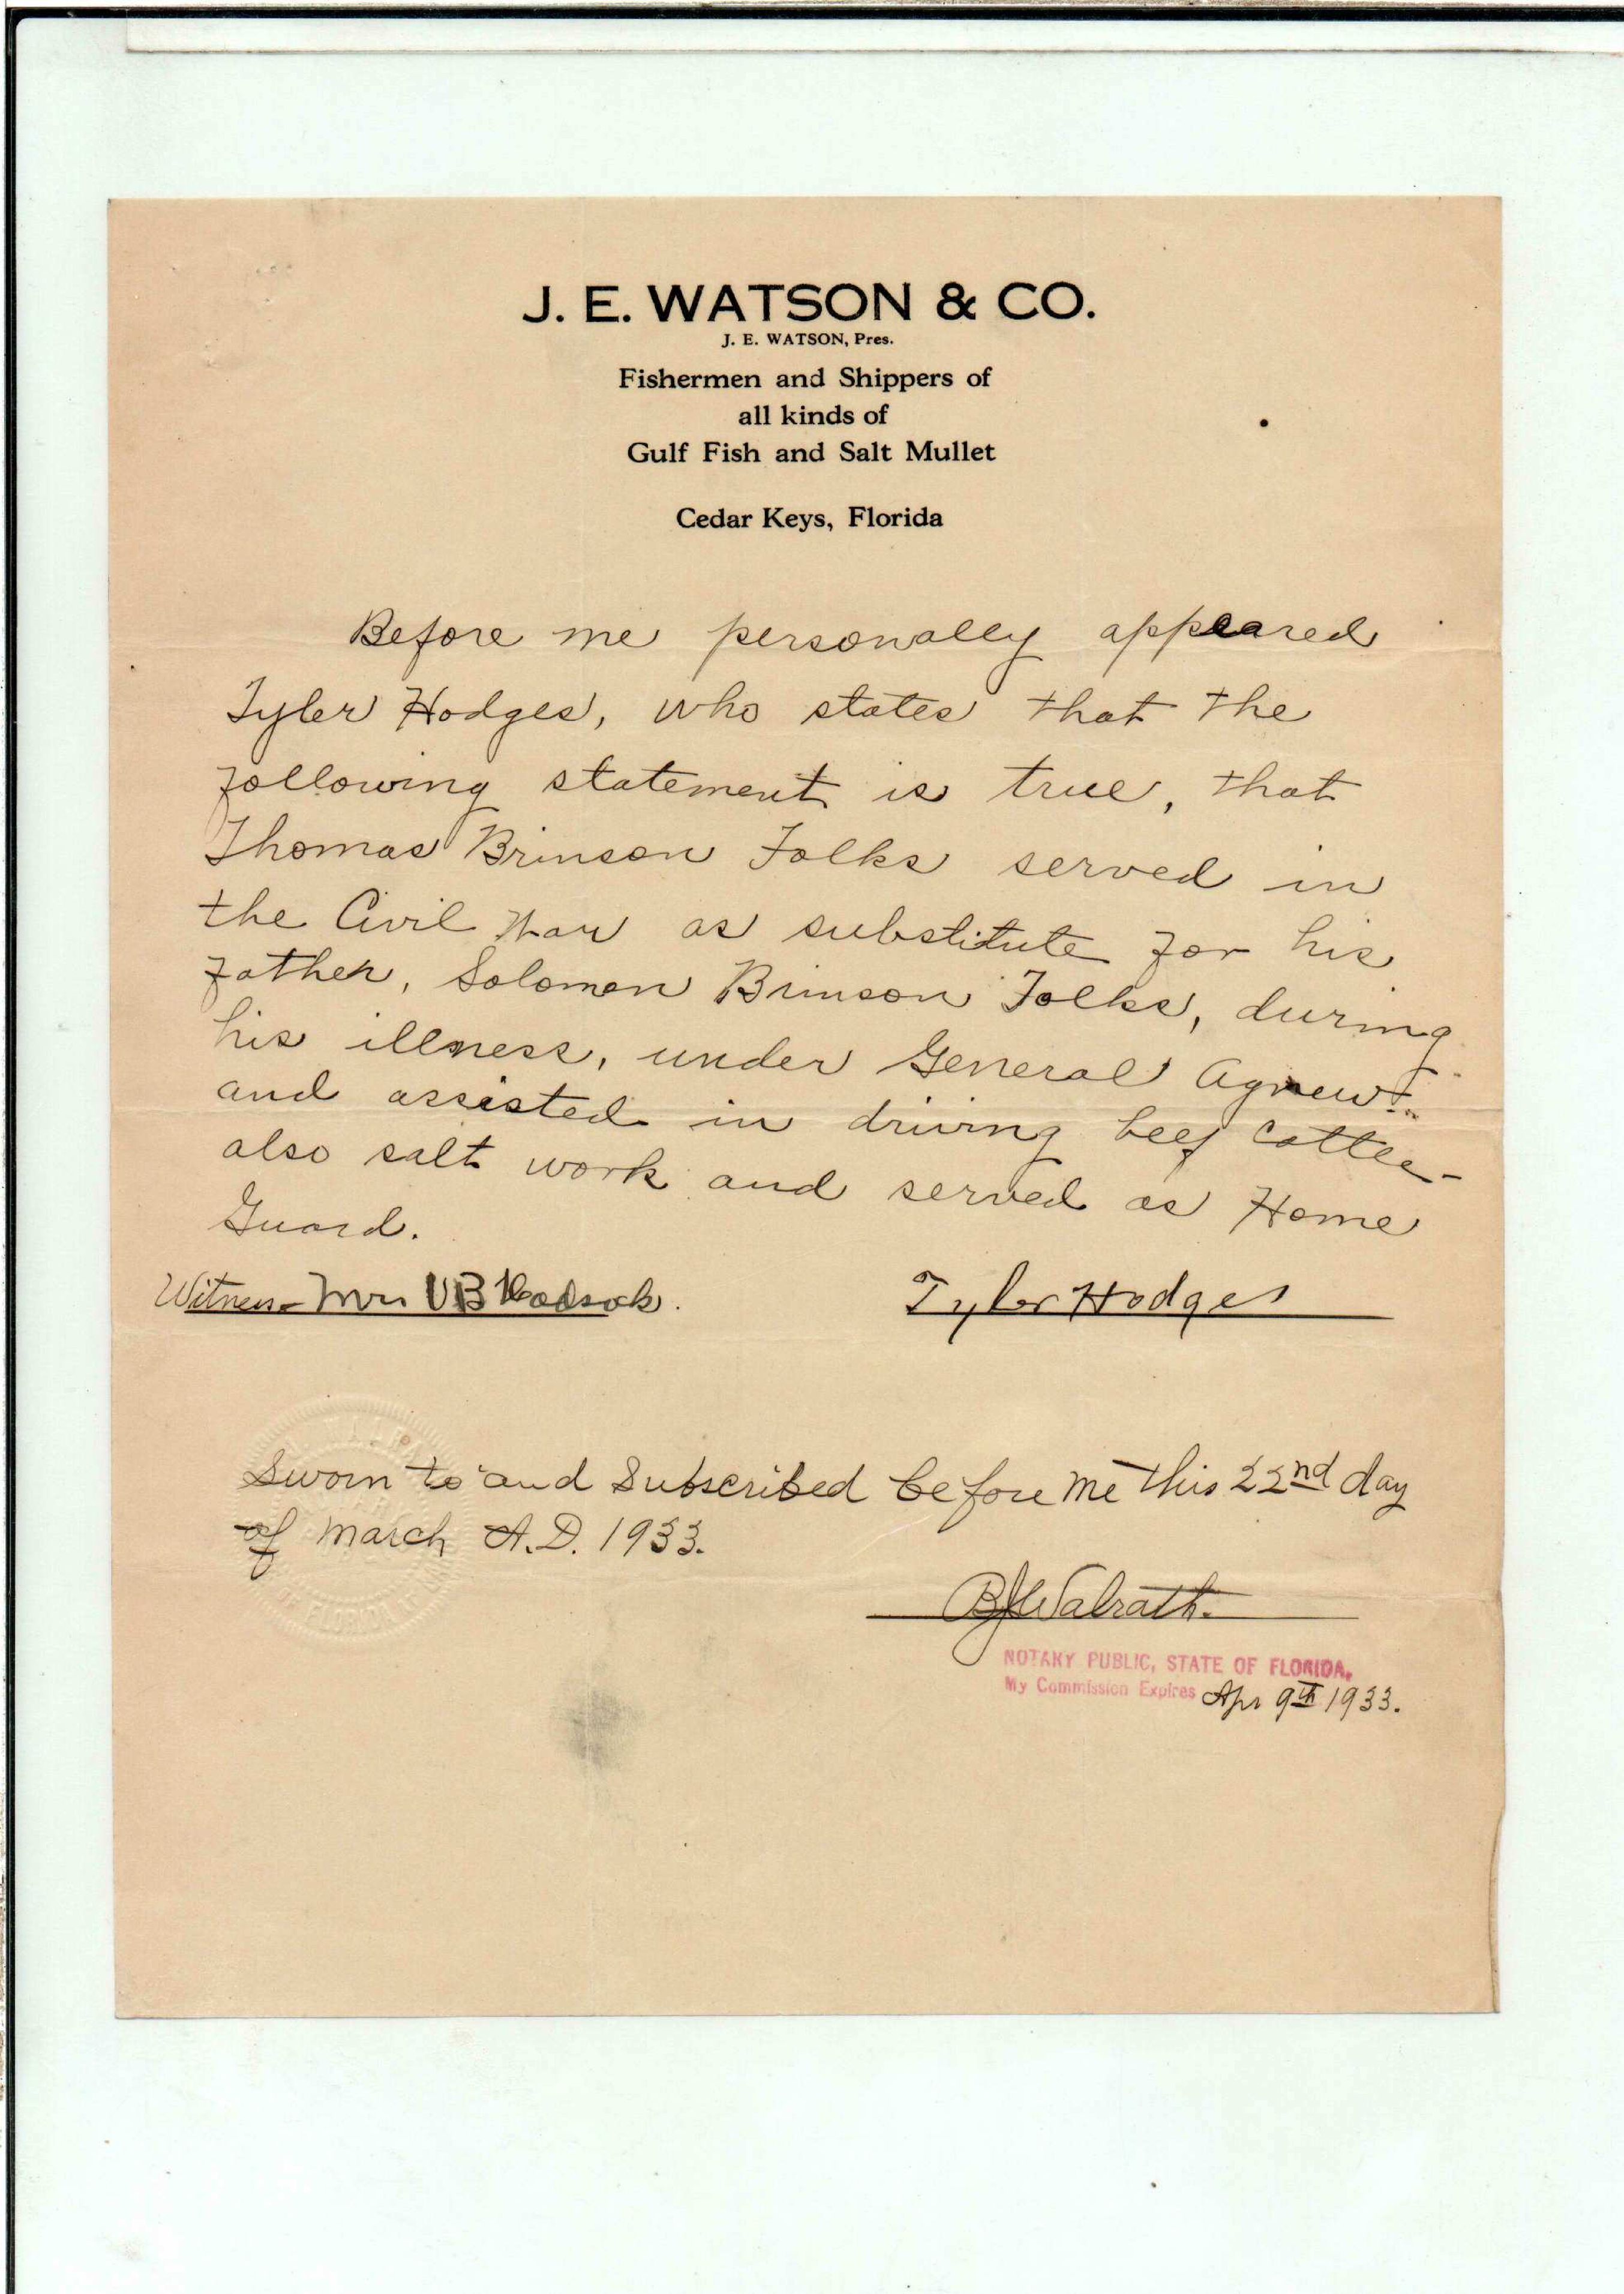 J. E. WATSON & CO.
J. E. WATSON, Pres.
Fishermen and Shippers of
all kinds of
Gulf Fish and Salt Mullet
Cedar Keys, Florida
Before me personally appeared
Tyler Hodges, who states that the
following statement is true, that
Thomas Brinson Folks served in
the Civil War as substitute for his
father, Solomon Brinson Folks, during
his illness, under General Agnew
and assisted in driving beef cattle-
also salt work and served as Home
Guard.
Witness- Mrs V B
Tyler Hodges
Sworn to and Subscribed before me this 22nd day
of March A.D. 1933.
B J Walrath.
NOTARY PUBLIC, STATE OF FLORIDA.
My Commission Expires Apr 9th 1933.